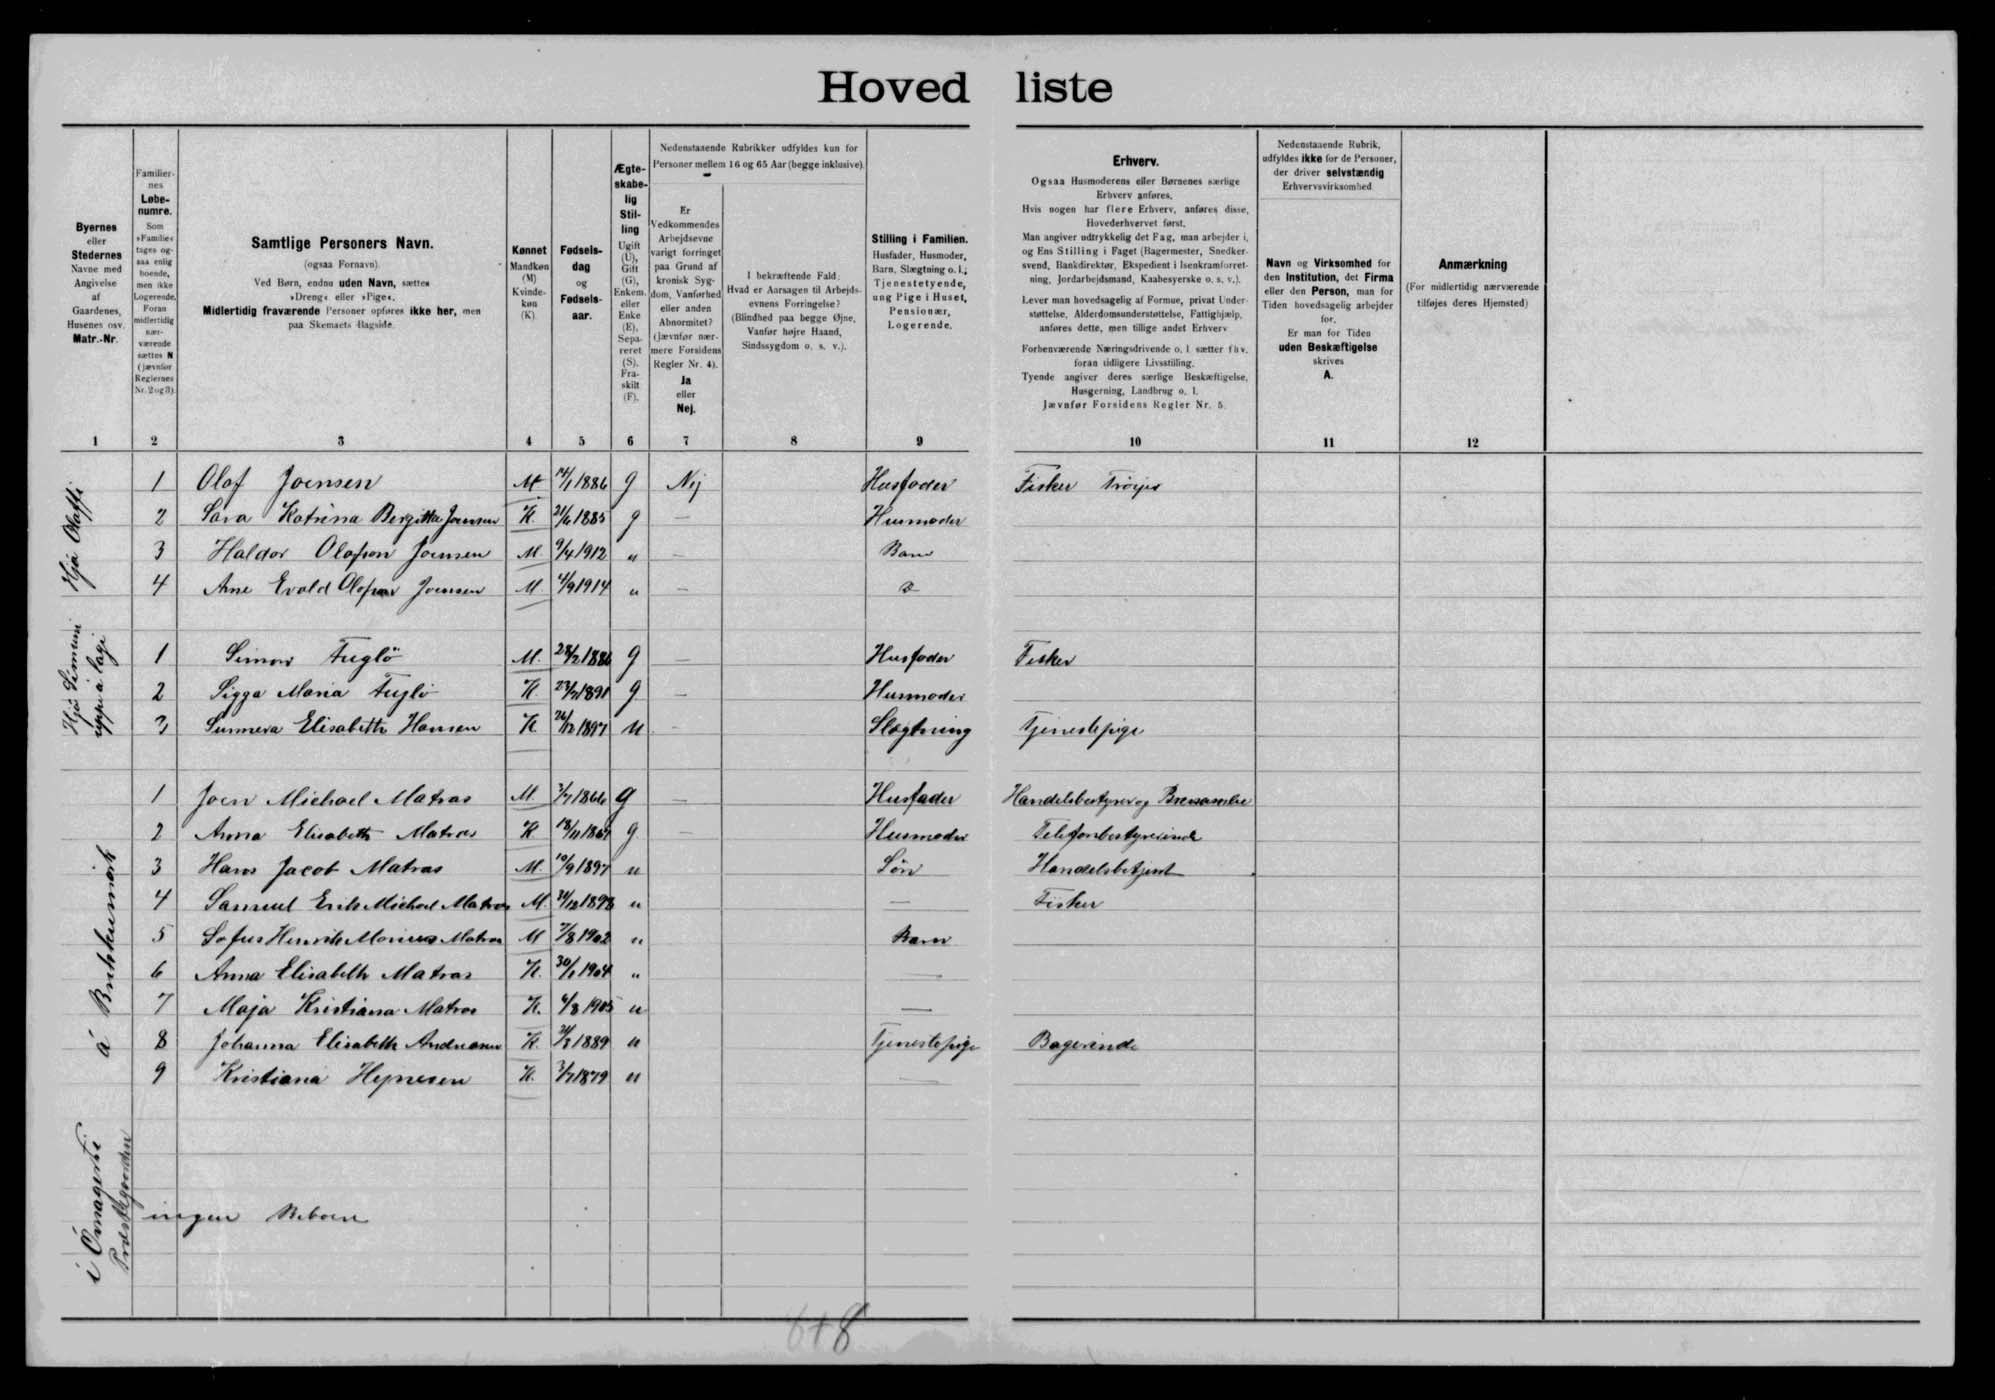 Hovedliste
Byernes
eller
Stedernes
Navne med
Angivelse
af
Gaardenes,
Husenes osv.
Matr.-Nr.
Familier-
nes
Løbe-
numre.
Som
»Familie«
tages og-
saa enlig
boende,
men ikke
Logerende.
Foran
midlertidig
nær-
værende
sættes N
(jævnfør
Reglernes
Nr. 2 og 3)
Samtlige Personers Navn.
(ogsaa Fornavn).
Ved Børn, endnu uden Navn, sættes
»Dreng« eller »Pige«.
Midlertidig fraværende Personer opføres ikke her, men
paa Skemaets Bagside.
Kønnet
Mandkøn
(M)
Kvinde-
køn
(K).
Fødsels-
dag
og
Fødsels-
aar.
Ægte-
skabe-
lig
Stil-
ling
Ugift
(U),
Gift
(G),
Enkem.
eller
Enke
(E),
Sepa-
reret
(S),
Fra-
skilt
(F).
Nedenstaaende Rubrikker udfyldes kun for
Personer mellem 16 og 65 Aar (begge inklusive).
Er
Vedkommendes
Arbejdsevne
varigt forringet
paa Grund af
kronisk Syg-
dom, Vanførhed
eller anden
Abnormitet?
(Jævnfør nær-
mere Forsidens
Regler Nr. 4).
Ja
eller
Nej.
I bekræftende Fald:
Hvad er Aarsagen til Arbejds-
evnens Forringelse?
(Blindhed paa begge Øjne,
Vanfør højre Haand,
Sindssygdom o. s. v.).
Stilling i Familien.
Husfader, Husmoder,
Barn, Slægtning o. l.;
Tjenestetyende,
ung Pige i Huset,
Pensionær,
Logerende.
Erhverv.
Ogsaa Husmoderens eller Børnenes særlige
Erhverv anføres.
Hvis nogen har flere Erhverv, anføres disse,
Hovederhvervet først.
Man angiver udtrykkelig det Fag, man arbejder i,
og Ens Stilling i Faget (Bagermester, Snedker-
svend, Bankdirektør, Ekspedient i Isenkramforret-
ning, Jordarbejdsmand, Kaabesyerske o. s. v.).
Lever man hovedsagelig af Formue, privat Under-
støttelse, Alderdomsunderstøttelse, Fattighjælp,
anføres dette, men tillige andet Erhverv
Forhenværende Næringsdrivende o. l. sætter fhv.
foran tidligere Livsstilling.
Tyende angiver deres særlige Beskæftigelse,
Husgerning, Landbrug o. l.
Jævnfør Forsidens Regler Nr. 5.
Nedenstaaende Rubrik,
udfyldes ikke for de Personer,
der driver selvstændig
Erhvervsvirksomhed
Navn og Virksomhed for
den Institution, det Firma
eller den Person, man for
Tiden hovedsagelig arbejder
for.
Er man for Tiden
uden Beskæftigelse
skrives
A.
Anmærkning
(For midlertidig nærværende
tilføjes deres Hjemsted)
1 2 3 4 5 6 7 8 9 10 11 12
Hjá Olaffi
1 Olaf Joensen M 14/1 1886 g Nej Husfader Fisker
2 Sara Katrina Bergitta Joensen K. 21/6 1885 g — Husmoder
3 Haldor Olafson Joensen M 9/4 1912 „ — Barn
4 Arne Evald Olafson Joensen M 4/9 1914 „ —
Hjá Símuni
uppi á lagi
1 Simon Fuglö M. 28/2 1886 g — Husfader Fisker
2 Sigga Maria Fuglö K. 1891 g — Husmoder
3 Sunneva Elisabeth Hansen K. 26/12 1897 u — Slægtning Tjenestepige
1 Joen Michael Matras M. 3/7 1866 g — Husfader Handelsbestyrer og
2 Anna Elisabeth Matras K 18/11 1869 g — Husmoder Telefonbestyrerinde
3 Hans Jacob Matras M. 10/9 1897 u Søn Handelsbetjent
4 Samuel Erik Michael Matras M. 1898 u — Fisker
5 Sofus Henrik Marius Matras M 7/8 1902 u Barn
6 Anna Elisabeth Matras K. 30/1 1904 „ —
7 Maja Kristiana Matras K. 6/8 1905 u —
8 Johanna Elisabeth Andreasen K. 1889 u Tjenestepige Bagerinde
9 Kristiana Hejnesen K. 3/7 1879 u —
á
i Ónagerði
Præstegaarden
ingen Beboere
8+8